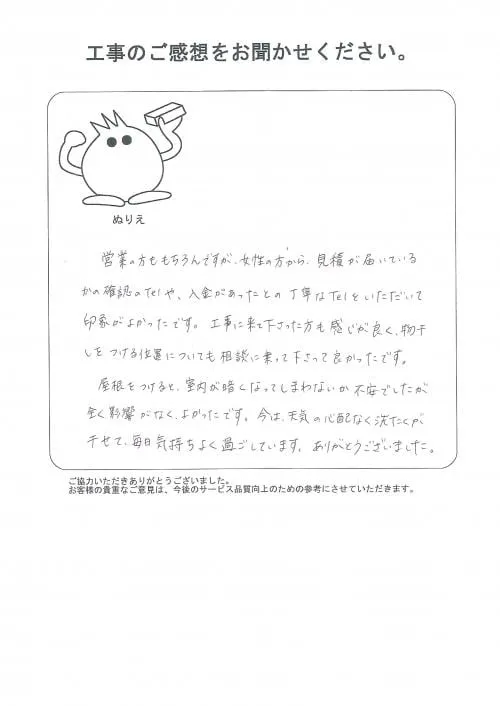 工事のご感想をお聞かせください。
ぬりえ
営業の方ももちろんですが、女性の方から、見積が届いている
かの確認のTelや、入金があったとの丁寧なTelをいただいて
印象がよかったです。工事に来て下さった方も感じが良く、物干
しをつける位置についても相談に乗って下さって良かったです。
屋根をつけると、室内が暗くなってしまわないか不安でしたが
全く影響がなく、よかったです。今は、天気の心配なく洗たくが
干せて、毎日気持ちよく過ごしています。ありがとうございました。
ご協力いただきありがとうございました。
お客様の貴重なご意見は、今後のサービス品質向上のための参考にさせていただきます。